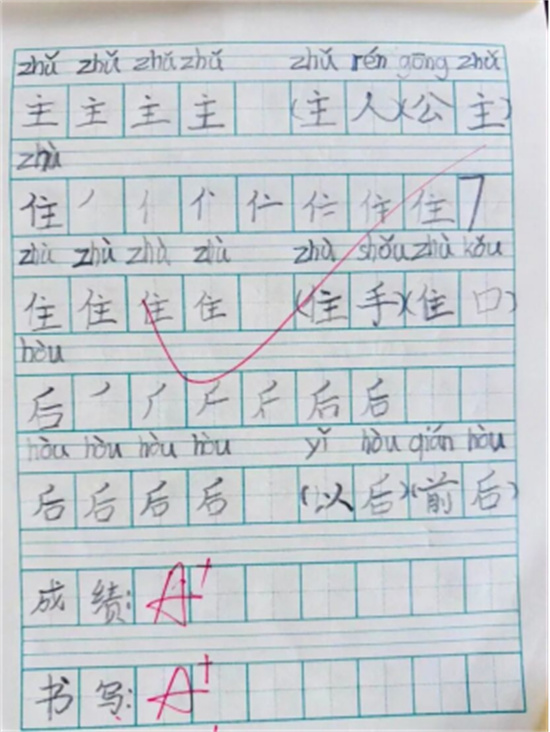 zhǔ zhǔ zhǔ zhǔ zhǔ rén gōng zhǔ
主 主 主 主 (主 人)(公 主)
zhù
住 丿 亻 亻 仁 仨 住 住 7
zhù zhù zhù zhù zhù shǒu zhù kǒu
住 住 住 住 (住 手)(住 口)
hòu
后 后 后
hòu hòu hòu hòu yǐ hòu qián hòu
后 后 后 后 (以 后)(前 后)
成 绩: A+
书 写: A+